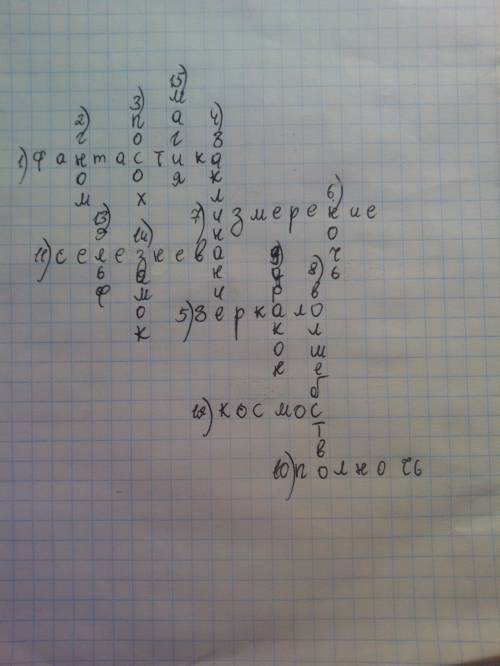 15) магия
2) гном
3) посох
4) заклинание
1) фантастика
6) ночь
7) измерение
13) эльф
14) замок
11) селезнева
9) дракон
8) волшебство
5) зеркало
12) космос
10) полночь